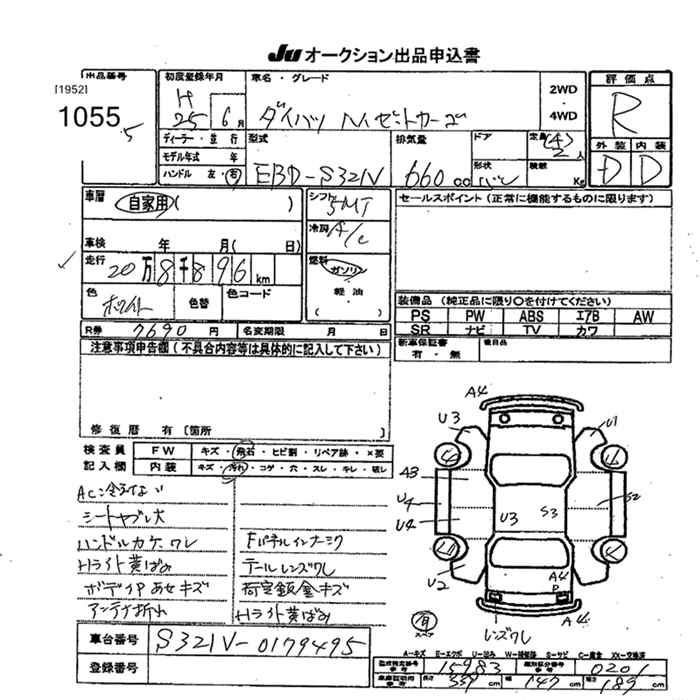 JU オークション出品申込書
出品番号
[1952]
1055
5
初度登録年月
H
25 6月
車名・グレード
ダイハツ ハイゼットカーゴ
2WD
・
4WD
評価点
R
外装 内装
D D
ディーラー・並行
モデル年式 年
ハンドル 左・右
型式
EBD-S321V
排気量
660 cc
ドア
形状
バン
定員 (4)
2 人
積載
Kg
車歴
自家用 ( )
シフト
5MT
冷房
A/C
セールスポイント (正常に機能するものに限ります)
車検 年 月( 日)
走行
20万8千896km
燃料
ガソリン
・
軽油
( )
色
ホワイト
色替
色コード
装備品 (純正品に限り○を付けてください)
PS PW ABS エアB AW
SR ナビ TV カワ
R券 7690 円 名変期限 月 日
新車保証書
有・無
後日品
注意事項申告欄 (不具合内容等は具体的に記入して下さい)
修復歴 有 [箇所 ]
検査員
記入欄
FW キズ・飛石・ヒビ割・リペア跡・×要
内装 キズ・汚れ・コゲ・穴・スレ・キレ・破レ
AC冷えない
シートヤブレ大
ハンドルカケ、ワレ
Hライト黄ばみ
ボディPあせキズ
アンテナ折れ
Fパネルインナーミク
テールレンズワレ
荷室鈑金キズ
Hライト黄ばみ
A4
U3
U1
A3
U4
U4
U3
S3
S2
U2
A4
P
A4
レンズワレ
有
スペア
車台番号 S321V-0179495
登録番号
A-キズ E-エクボ U-凹み W-補修跡 S-サビ C-腐食 XX-交換済
型式指定番号
参考
15983
類別区分番号
参考
0201
車庫証明用
参考
長さ 339 cm 幅 147 cm 高さ 189 cm